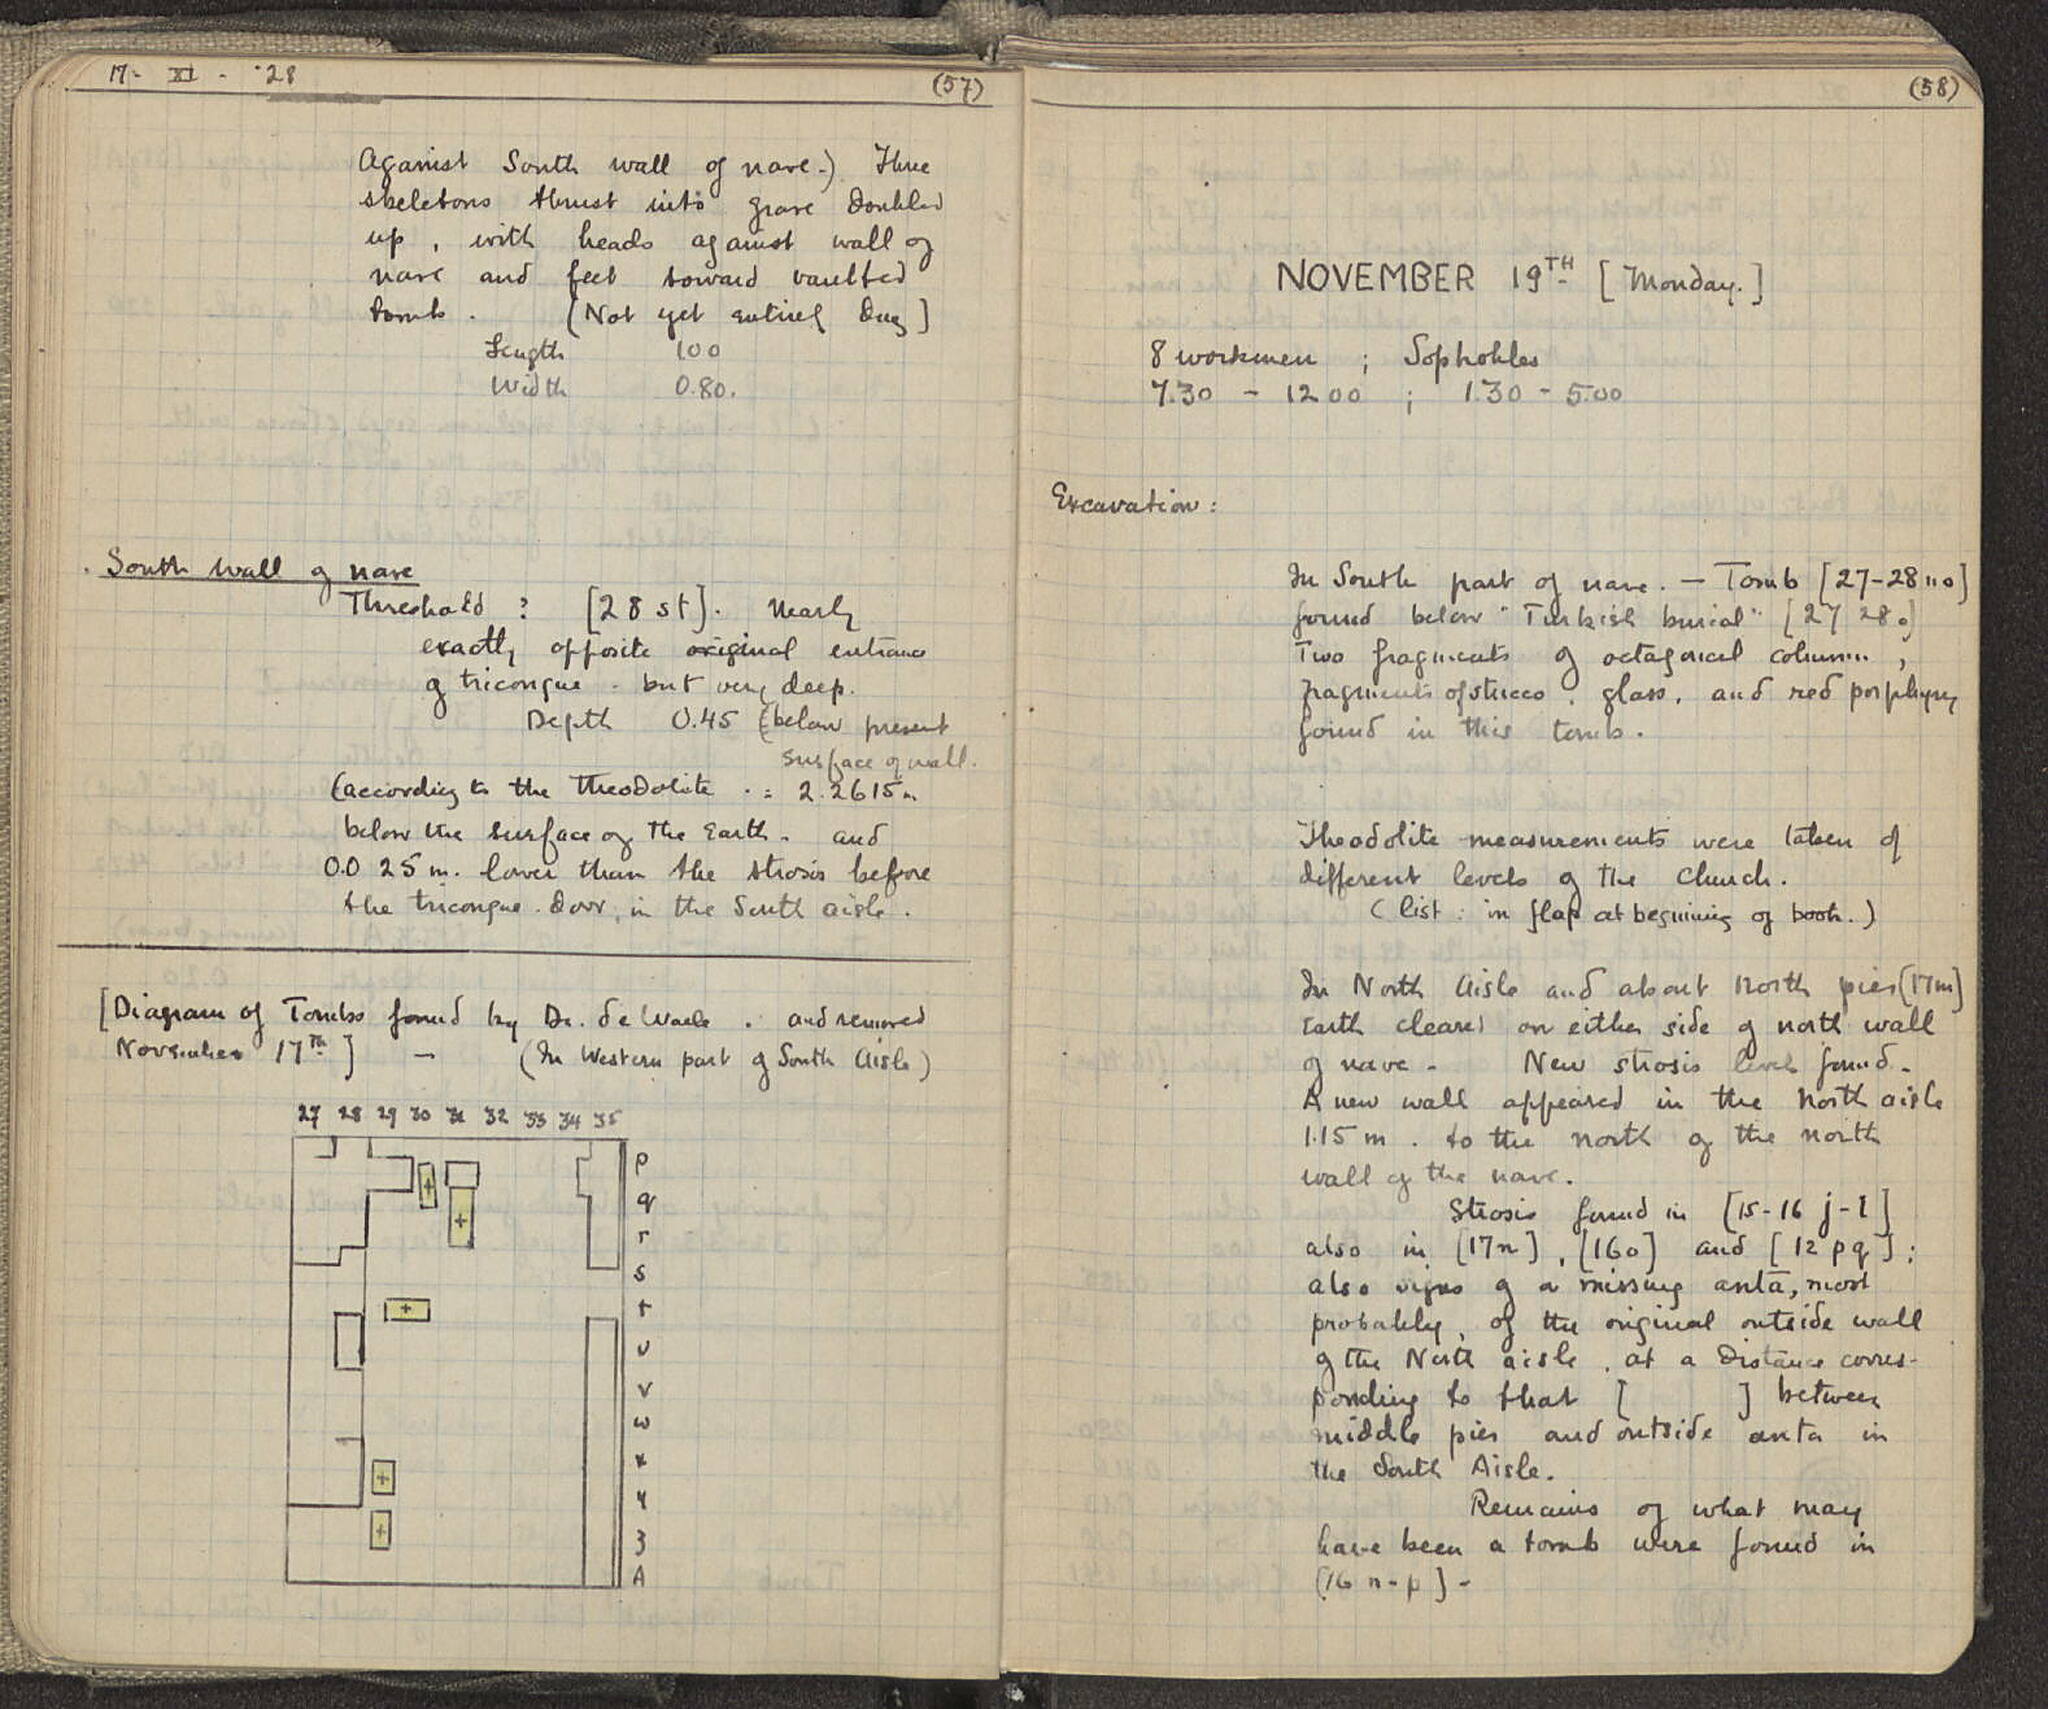 17 - XI - '28
(57)
Against South wall of nave.) Three
skeletons thrust into grave doubled
up, with heads against wall of
nave and feet toward vaulted
tomb. [Not yet entirely dug]
Length 100
Width 0.80.
South wall of nave
Threshold ? [28 st]. Nearly
exactly opposite original entrance
of tricongue. but very deep.
Depth 0.45 (below present
surface of wall.
(according to the Theodolite := 2.2615 m
below the surface of the Earth. and
0.025 m. lower than the strosis before
the tricongue door, in the South aisle.
[Diagram of Tombs found by Dr. de Waele. and removed
November 17th] - (In Western part of South Aisle)
27 28 29 30 31 32 33 34 35
p
q
r
s
t
u
v
w
x
y
z
A
(58)
NOVEMBER 19TH [Monday.]
8 workmen ; Sophokles
7.30 - 12 00 ; 1.30 - 5.00
Excavation:
In South part of nave. - Tomb [27-28 no]
found below "Turkish burial" [27 28 o]
Two fragments of octagonal column,
fragments of stucco, glass, and red porphyry
found in this tomb.
Theodolite measurements were taken of
different levels of the Church.
(list: in flap at beginning of book.)
In North Aisle and about North pier [17m]
Earth cleared on either side of north wall
of nave - New strosis level found.
A new wall appeared in the North aisle
1.15 m. to the north of the north
wall of the nave.
Strosis found in [15-16 j-l]
also in [17n], [16o] and [12 pq];
also signs of a missing anta, most
probably, of the original outside wall
of the North aisle, at a distance corres-
ponding to that [ ] between
middle pier and outside anta in
the South Aisle.
Remains of what may
have been a tomb were found in
[16 n-p] -